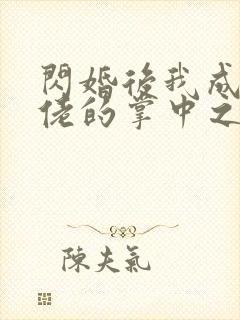 閃婚後我成
佬的掌中之
陳夫氣